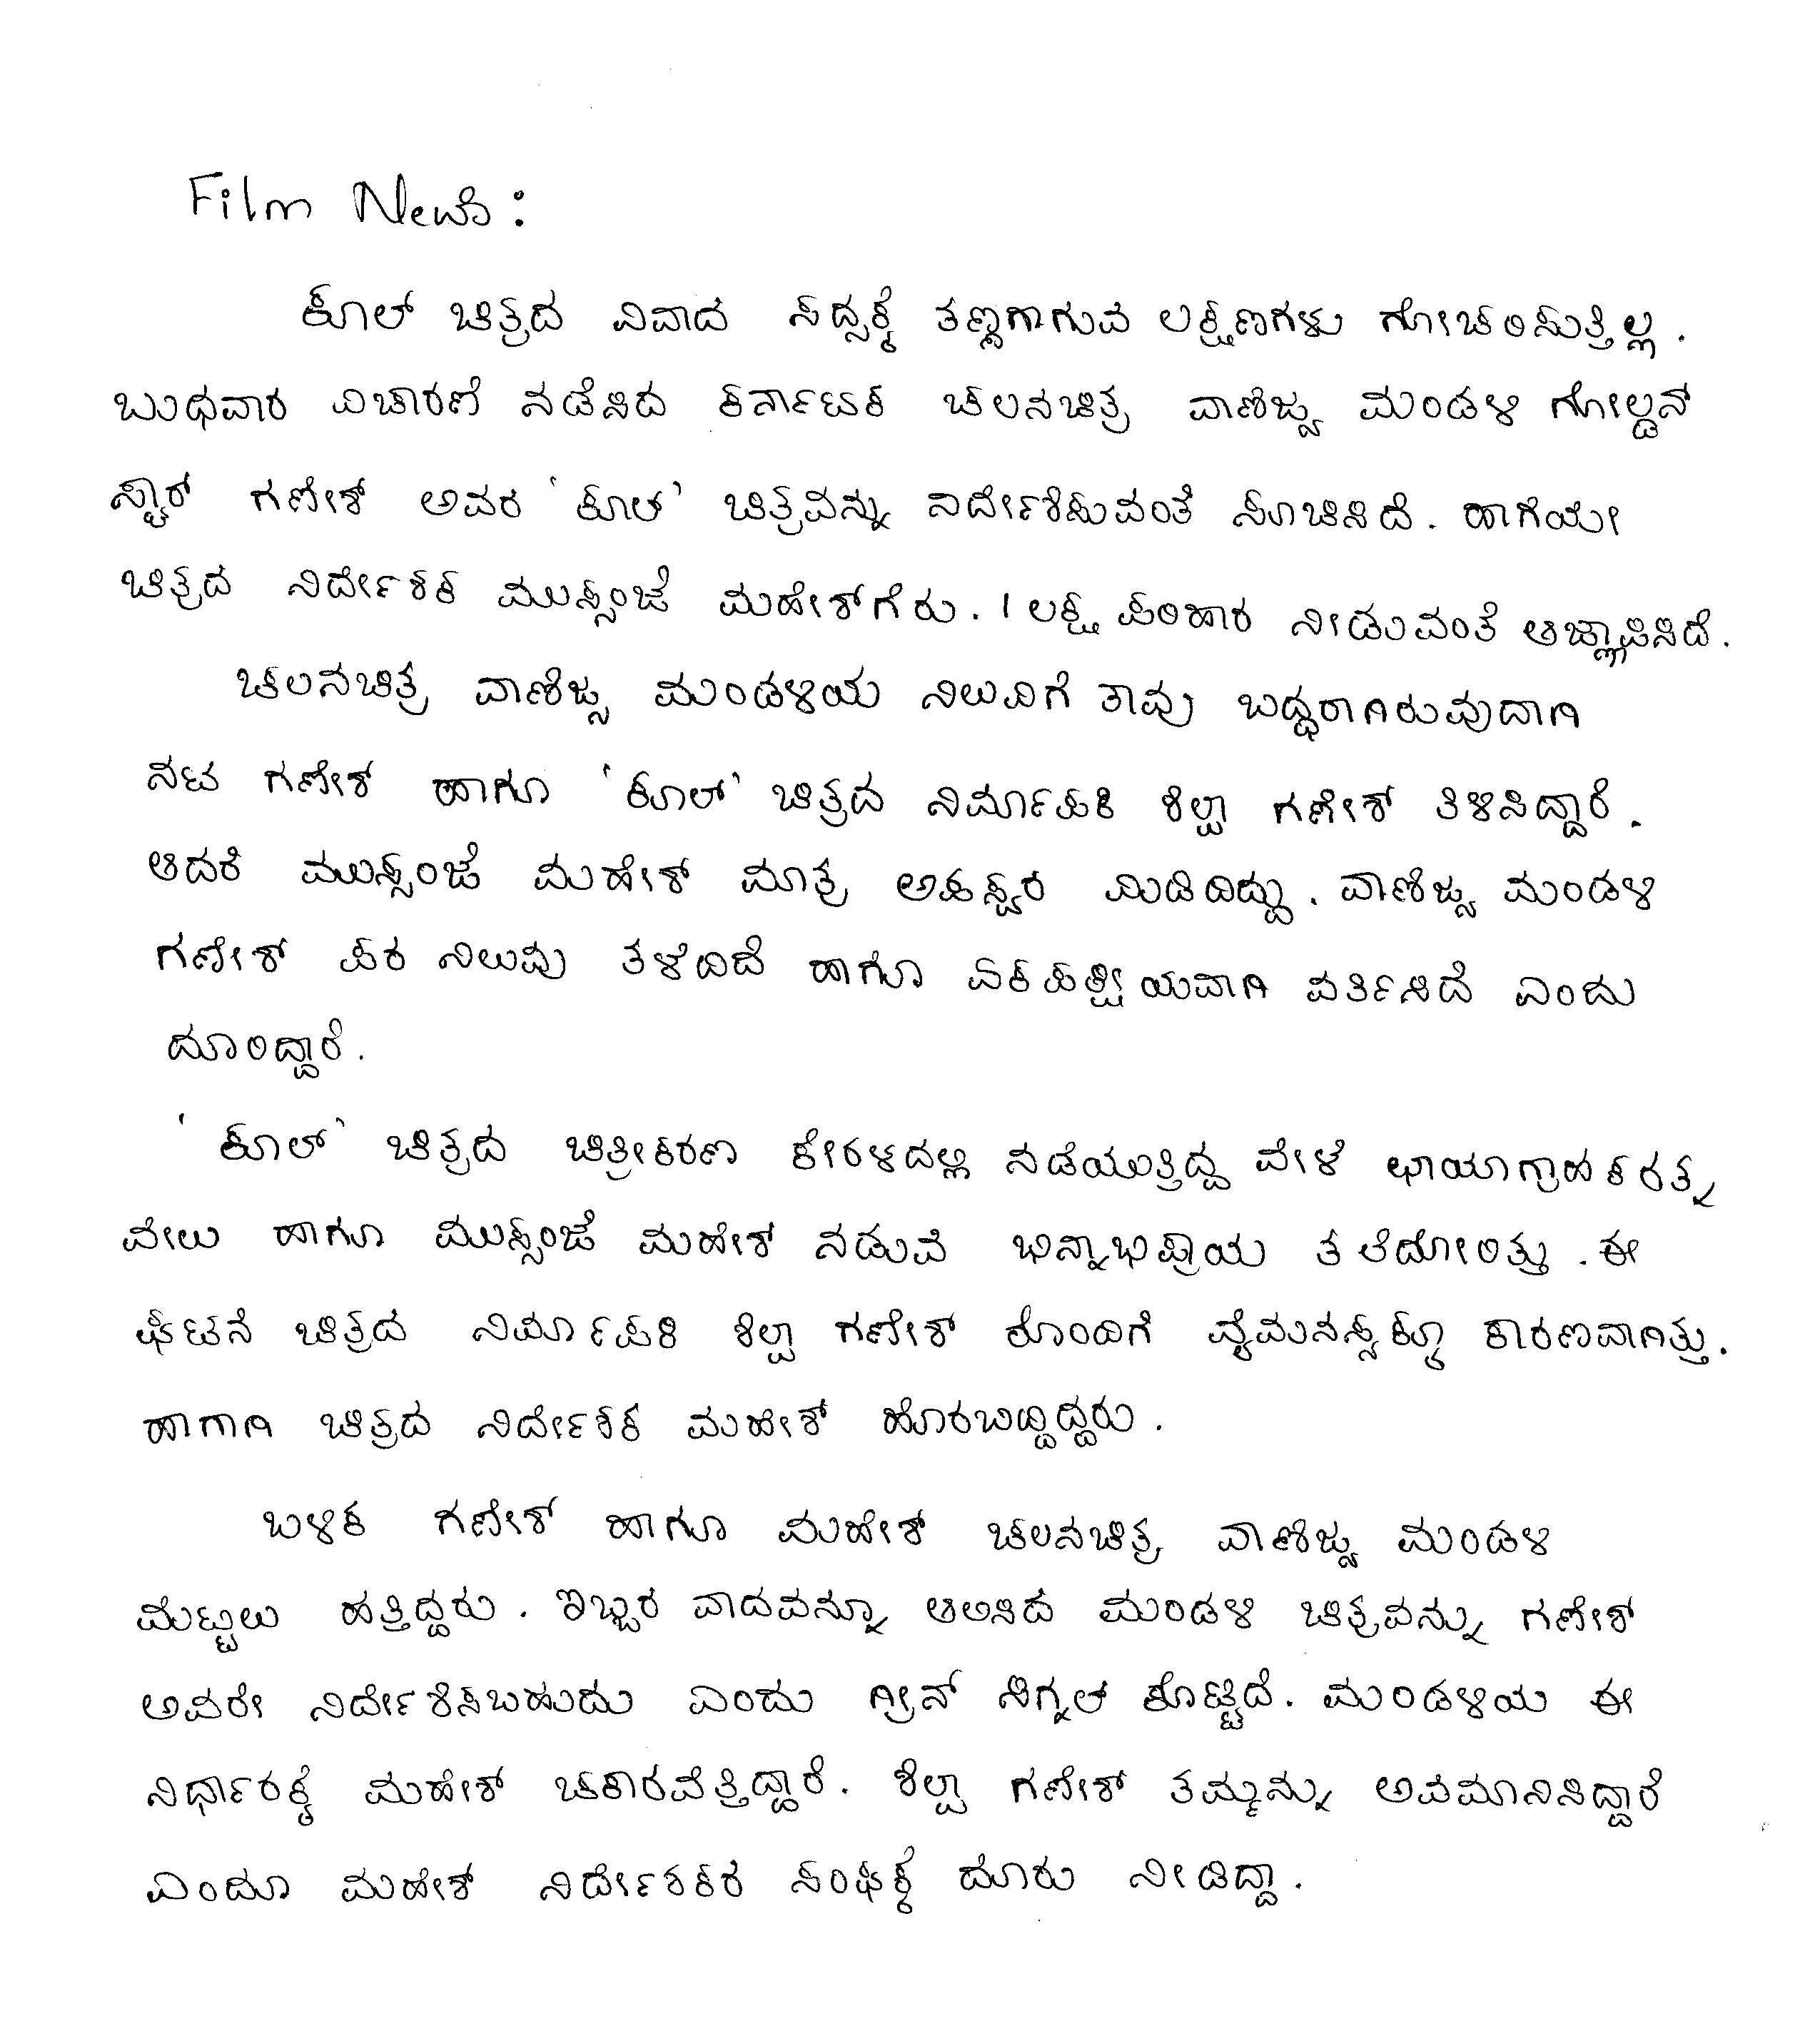 Film News:
ಕೂಲ್ ಚಿತ್ರದ ವಿವಾದ ಸದ್ಯಕ್ಕೆ ತಣ್ಣಗಾಗುವ ಲಕ್ಷಣಗಳು ಗೋಚರಿಸುತ್ತಿಲ್ಲ.
ಬುಧವಾರ ವಿಚಾರಣೆ ನಡೆಸಿದ ಕರ್ನಾಟಕ ಚಲನಚಿತ್ರ ವಾಣಿಜ್ಯ ಮಂಡಳಿ ಗೋಲ್ಡನ್
ಸ್ಟಾರ್ ಗಣೇಶ್ ಅವರ 'ಕೂಲ್' ಚಿತ್ರವನ್ನು ನಿರ್ದೇಶಿಸುವಂತೆ ಸೂಚಿಸಿದೆ. ಹಾಗೆಯೇ
ಚಿತ್ರದ ನಿರ್ದೇಶಕ ಮುಸ್ಸಂಜೆ ಮಹೇಶ್‌ಗೆ ರು. 1 ಲಕ್ಷ ಪರಿಹಾರ ನೀಡುವಂತೆ ಆಜ್ಞಾಪಿಸಿದೆ.
ಚಲನಚಿತ್ರ ವಾಣಿಜ್ಯ ಮಂಡಳಿಯ ನಿಲುವಿಗೆ ತಾವು ಬದ್ಧರಾಗಿರುವುದಾಗಿ
ನಟ ಗಣೇಶ್ ಹಾಗೂ 'ಕೂಲ್' ಚಿತ್ರದ ನಿರ್ಮಾಪಕಿ ಶಿಲ್ಪಾ ಗಣೇಶ್ ತಿಳಿಸಿದ್ದಾರೆ.
ಆದರೆ ಮುಸ್ಸಂಜೆ ಮಹೇಶ್ ಮಾತ್ರ ಅಪಸ್ವರ ಮಿಡಿದಿದ್ದು. ವಾಣಿಜ್ಯ ಮಂಡಳಿ
ಗಣೇಶ್ ಪರ ನಿಲುವು ತಳೆದಿದೆ ಹಾಗೂ ಏಕಪಕ್ಷೀಯವಾಗಿ ವರ್ತಿಸಿದೆ ಎಂದು
ದೂರಿದ್ದಾರೆ.
'ಕೂಲ್' ಚಿತ್ರದ ಚಿತ್ರೀಕರಣ ಕೇರಳದಲ್ಲಿ ನಡೆಯುತ್ತಿದ್ದ ವೇಳೆ ಛಾಯಾಗ್ರಾಹಕ ರತ್ನ
ವೇಲು ಹಾಗೂ ಮುಸ್ಸಂಜೆ ಮಹೇಶ್ ನಡುವೆ ಭಿನ್ನಾಭಿಪ್ರಾಯ ತಲೆದೋರಿತ್ತು. ಈ
ಘಟನೆ ಚಿತ್ರದ ನಿರ್ಮಾಪಕಿ ಶಿಲ್ಪಾ ಗಣೇಶ್ ರೊಂದಿಗೆ ವೈಮನಸ್ಸಕ್ಕೂ ಕಾರಣವಾಗಿತ್ತು.
ಹಾಗಾಗಿ ಚಿತ್ರದ ನಿರ್ದೇಶಕ ಮಹೇಶ್ ಹೊರಬಿದ್ದಿದ್ದರು.
ಬಳಿಕ ಗಣೇಶ್ ಹಾಗೂ ಮಹೇಶ್ ಚಲನಚಿತ್ರ ವಾಣಿಜ್ಯ ಮಂಡಳಿ
ಮೆಟ್ಟಿಲು ಹತ್ತಿದ್ದರು. ಇಬ್ಬರ ವಾದವನ್ನೂ ಆಲಿಸಿದ ಮಂಡಳಿ ಚಿತ್ರವನ್ನು ಗಣೇಶ್
ಅವರೇ ನಿರ್ದೇಶಿಸಬಹುದು ಎಂದು ಗ್ರೀನ್ ಸಿಗ್ನಲ್ ಕೊಟ್ಟಿದೆ. ಮಂಡಳಿಯ ಈ
ನಿರ್ಧಾರಕ್ಕೆ ಮಹೇಶ್ ಚಕಾರವೆತ್ತಿದ್ದಾರೆ. ಶಿಲ್ಪಾ ಗಣೇಶ್ ತಮ್ಮನ್ನು ಅವಮಾನಿಸಿದ್ದಾರೆ
ಎಂದೂ ಮಹೇಶ್ ನಿರ್ದೇಶಕರ ಸಂಘಕ್ಕೆ ದೂರು ನೀಡಿದ್ದಾ.